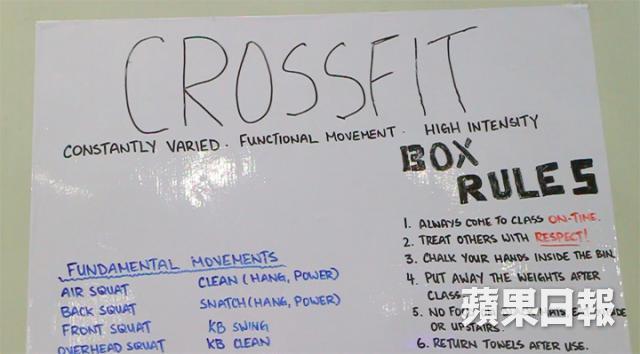 CROSSFIT
CONSTANTLY VARIED · FUNCTIONAL MOVEMENT · HIGH INTENSITY
BOX
RULES
1. ALWAYS COME TO CLASS ON-TIME.
2. TREAT OTHERS WITH RESPECT!
3. CHALK YOUR HANDS INSIDE THE BIN.
4. PUT AWAY THE WEIGHTS AFTER
CLASS
5. NO
OR UPSTAIRS.
6. RETURN TOWELS AFTER USE.
FUNDAMENTAL MOVEMENTS
AIR SQUAT CLEAN (HANG, POWER)
BACK SQUAT SNATCH (HANG, POWER)
FRONT SQUAT KB SWING
OVERHEAD SQUAT KB CLEAN
蘋果日報